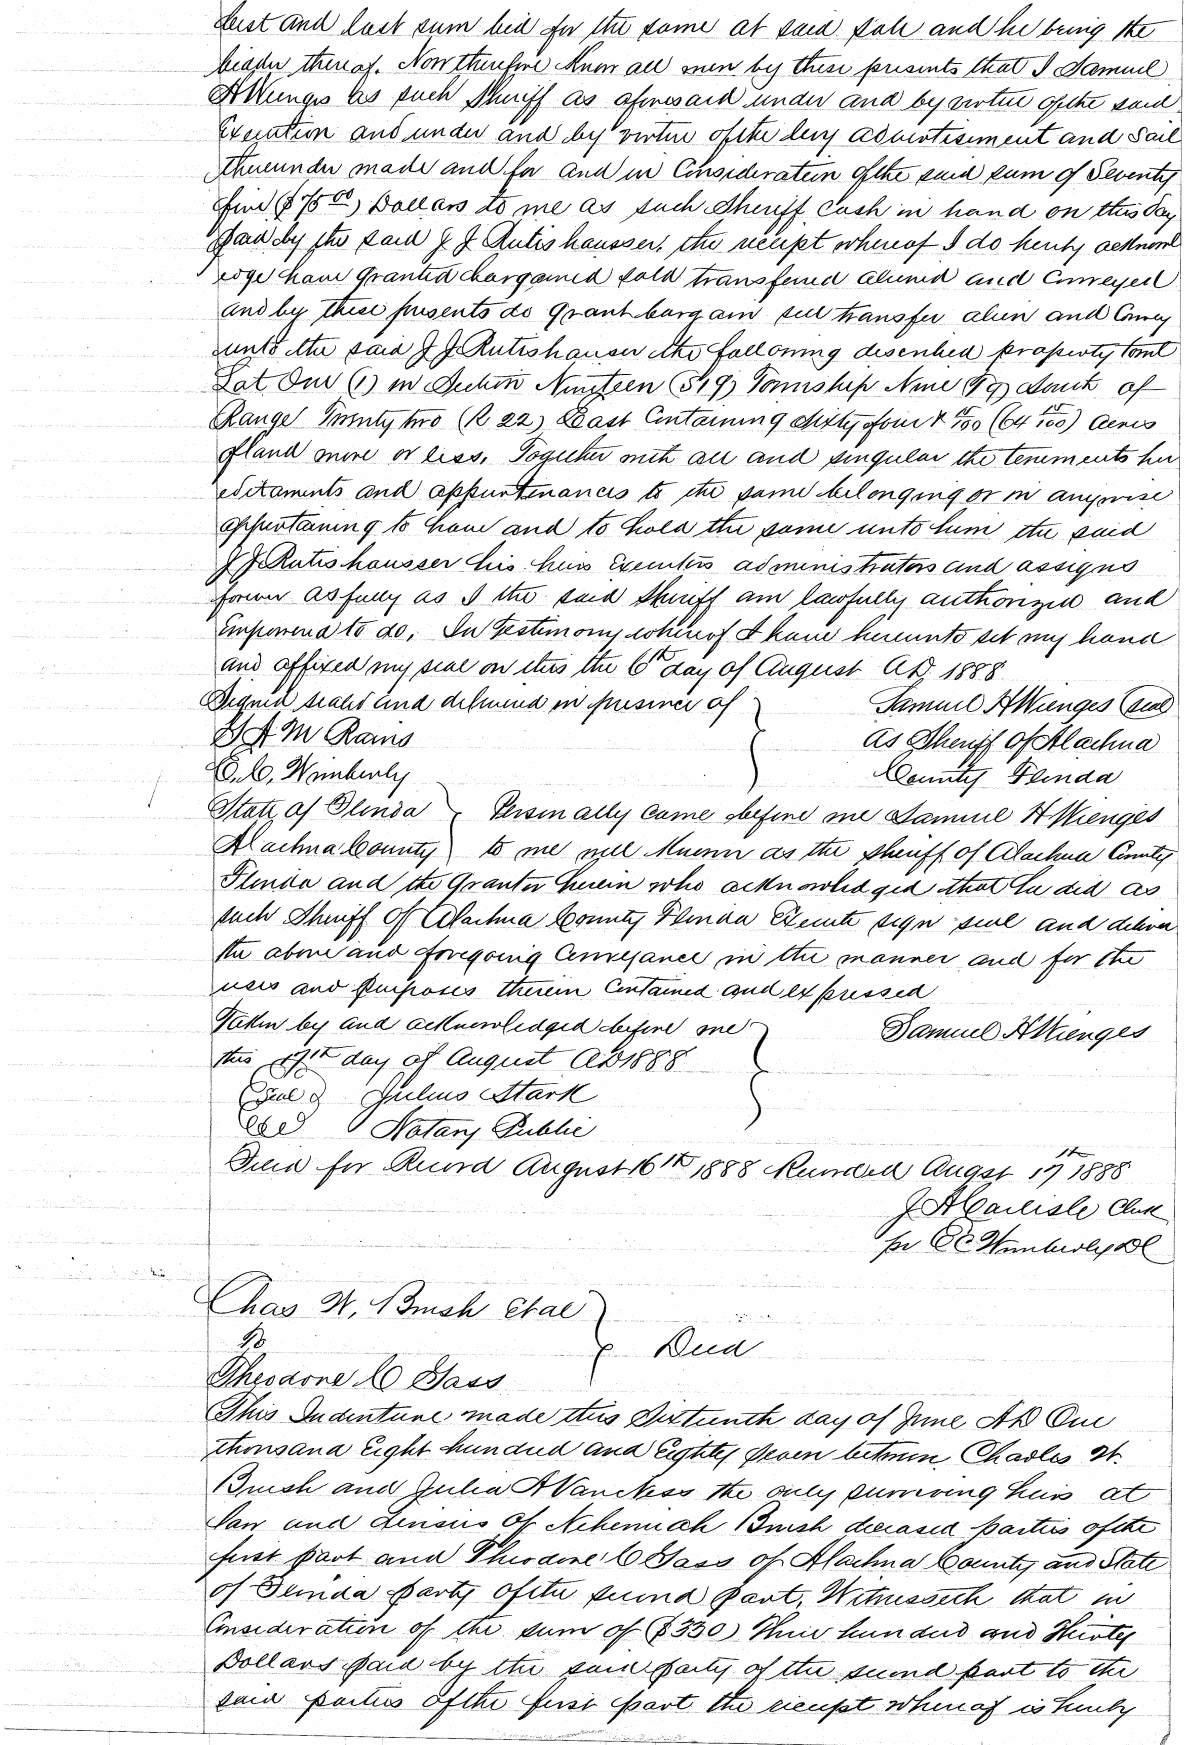 best and last sum bid for the same at said sale and he being the
bidder thereof. Now therefore Know all men by these presents that I Samuel
H Wienges as such Sheriff as aforesaid under and by virtue of the said
Execution and under and by virtue of the levy advertisement and Sail
thereunder made and for and in Consideration of the said sum of Seventy
five ($75 00) Dollars to me as such Sheriff Cash in hand on this day
paid by the said J J Rutishausser, the receipt whereof I do hereby acknowl
edge have granted bargained sold transferred aliened and Conveyed
and by these presents do grant bargain sell transfer alien and Convey
unto the said J J Rutishauser the following described property towit
Lot One (1) in Section Nineteen (S19) Township Nine (T9) South of
Range Twenty two (R 22) East Containing Sixty four & /100 (64 /100) acres
of land more or less, Together with all and singular the tenements her
editaments and appurtenances to the same belonging or in anywise
appertaining to have and to hold the same unto him the said
J J Rutishausser his heirs Executors administrators and assigns
forever as fully as I the said Sheriff am lawfully authorized and
Empowered to do. In Testimony whereof I have hereunto set my hand
and affixed my seal on this the 6th day of August AD. 1888
Signed sealed and delivered in presence of Samuel H Wienges (seal)
A M Rains as Sheriff of Alachua
E. C. Wimberly County Florida
State of Florida Personally came before me Samuel H Wienges
Alachua County to me well Known as the sheriff of Alachua County
Florida and the Grantor herein who acknowledged that he did as
such Sheriff of Alachua County Florida Execute sign seal and deliver
the above and foregoing Conveyance in the manner and for the
uses and purposes therein Contained and expressed
Taken by and acknowledged before me Samuel H Wienges
this 17th day of August AD 1888
(Seal) Julius Stark
Notary Public
Filed for Record August 16th 1888 Recorded Augst 17th 1888
J A Carlisle Clerk
per E C Wimberly DC
Chas W, Brush etal
To Deed
Theodore C Gass
This Indenture made this Sixteenth day of June AD One
thousand Eight hundred and Eighty Seven between Charles W.
Brush and Julia A VanNess the only surviving heirs at
law and devisees of Nehemiah Brush deceased parties of the
first part and Theodore C Gass of Alachua County and State
of Florida party of the second part, Witnesseth that in
Consideration of the sum of ($330) Three hundred and Thirty
Dollars paid by the said party of the second part to the
said parties of the first part the receipt whereof is hereby